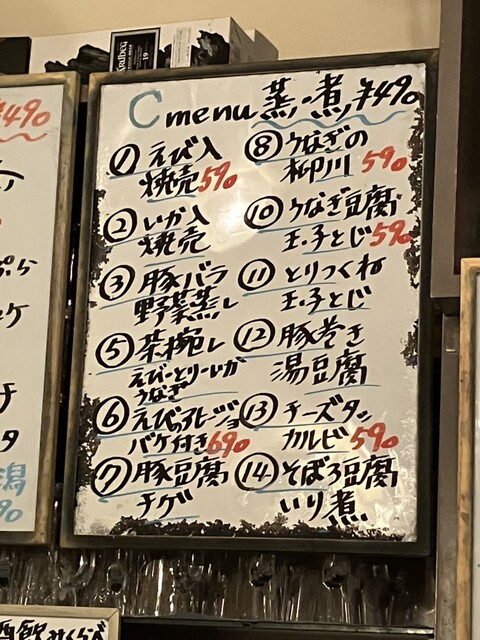 Cmenu 蒸・煮 ¥490
① えび入
焼売 590
② いか入
焼売
③ 豚バラ
野菜蒸し
⑤ 茶碗し
えび・とり・いか
うなぎ
⑥ えびっアレージョ
バケ付き 690
⑦ 豚豆腐
チゲ
⑧ うなぎの
柳川 590
⑩ うなぎ豆腐
玉子とじ 590
⑪ とりつくね
玉子とじ
⑫ 豚巻き
湯豆腐
⑬ チーズタッ
カルビ 590
⑭ そぼろ豆腐
いり煮
490
ぷら
潟
90
ARDBEG
19